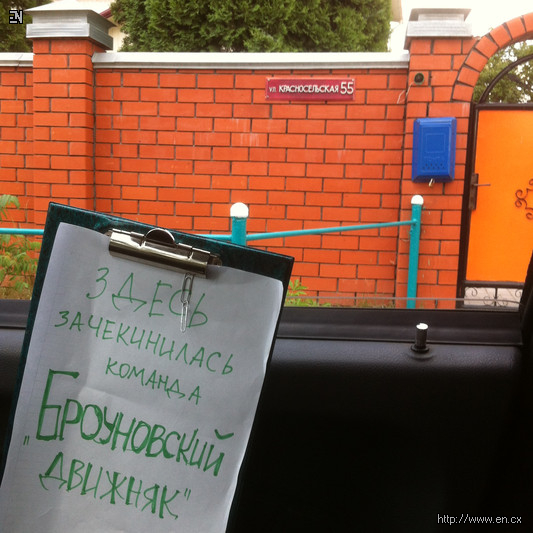 EN
ул. КРАСНОСЕЛЬСКАЯ 55
ЗДЕСЬ
ЗАЧЕКИНИЛАСЬ
КОМАНДА
„БРОУНОВСКИЙ
ДВИЖНЯК"
http://www.en.cx